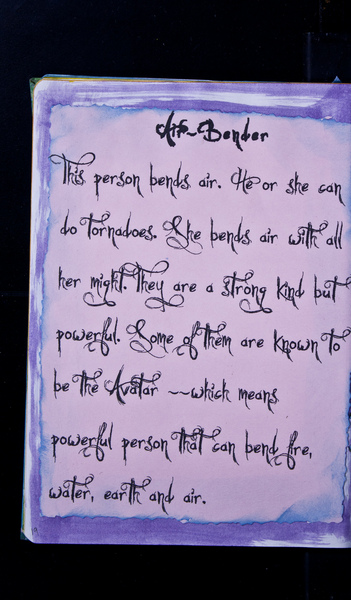 Air-Bender
This person bends air. He or she can
do tornadoes. She bends air with all
her might. They are a strong kind but
powerful. Some of them are known to
be the Avatar ~~which means
powerful person that can bend fire,
water, earth and air.